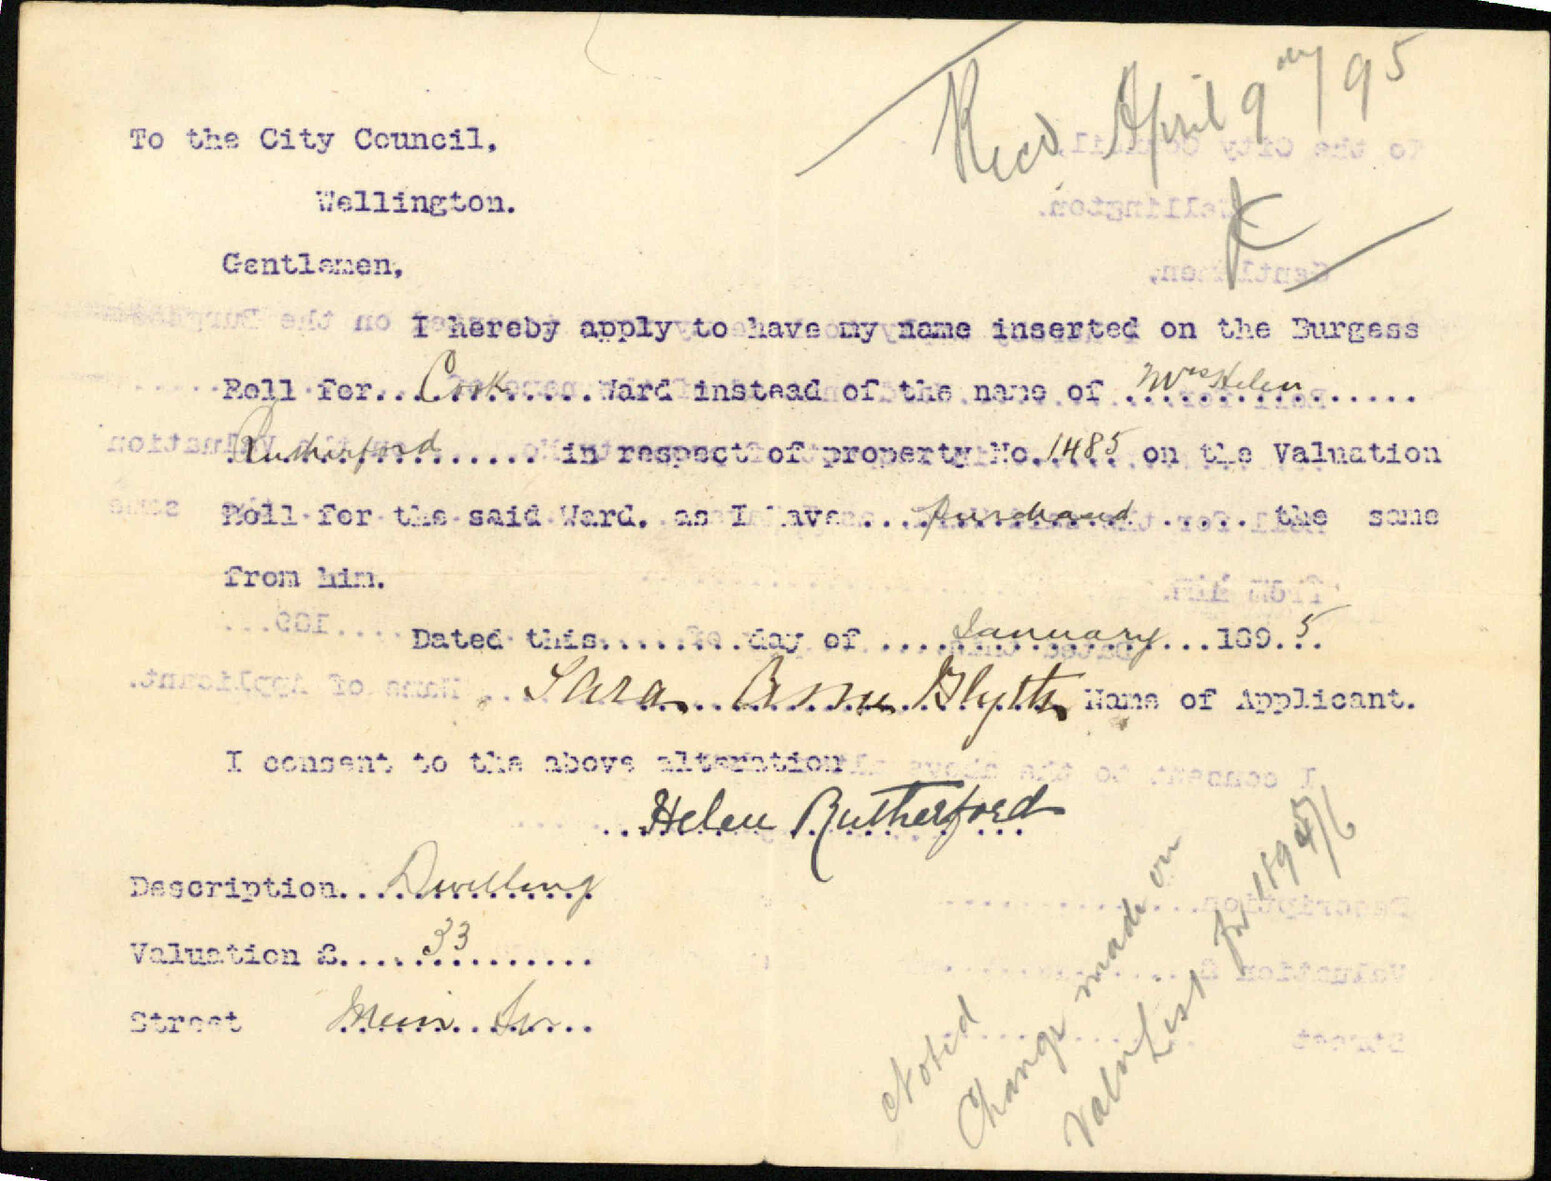 Recd April 9th/95
To the City Council,
Wellington.
Gentlemen,
I hereby apply to have my name inserted on the Burgess
Roll for...Cook.......Ward instead of the name of Mrs Helen
Rutherford...... in respect of property No.1485 on the Valuation
Roll for the said Ward, as I have...purchased......the same
from him.
Dated this........day of ....January...1895.
Sara Annie Blyth Name of Applicant.
I consent to the above alteration
Helen Rutherford
Description...Dwelling
Valuation £.....33.......
Street Mein St..
Noted
Change made on
Valn List for 1895/6